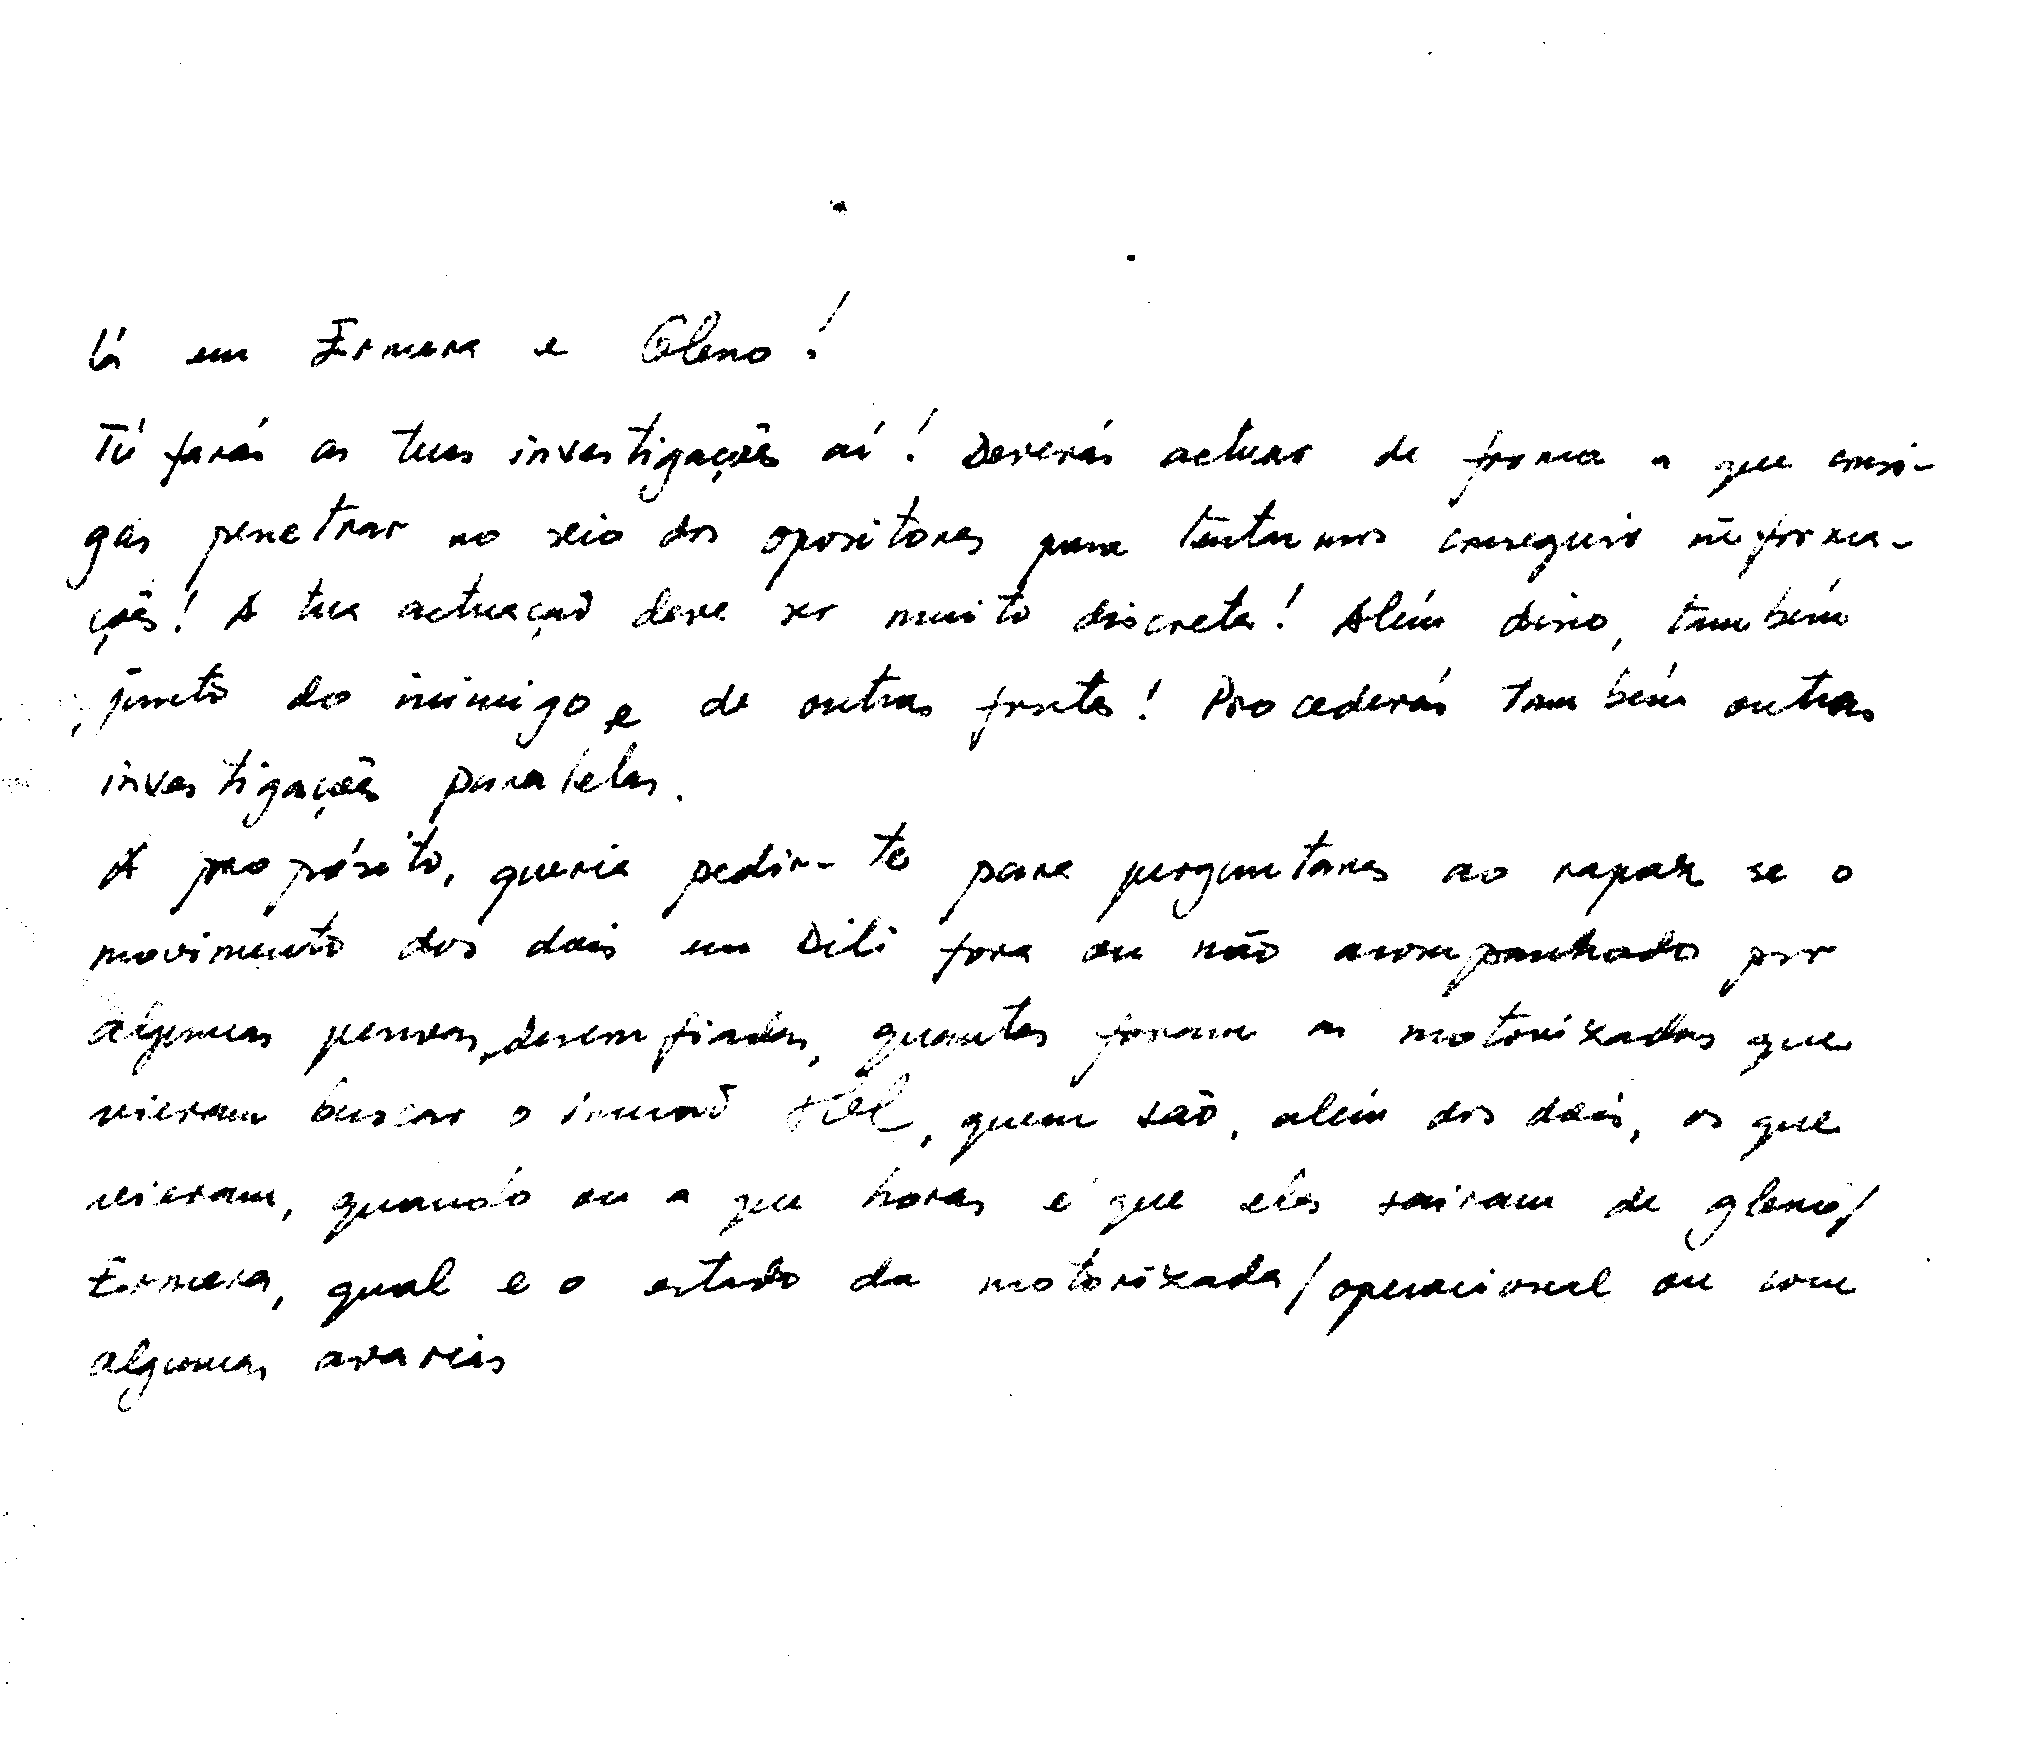 lá em Ermera e Gleno!
Tú farás as tuas investigações aí! Deverás actuar de forma a que consi-
gas penetrar no seio dos opositores para tentarmos conseguir informa-
ções! A tua actuação deve ser muito discreta! Além disso, também
junto do inimigo e de outras frentes! Procederás também outras
investigações paralelas.
A propósito, queria pedir-te para perguntares ao rapaz se o
movimento dos dois em Dili fora ou não acompanhado por
algumas pessoas desconfiadas, quantas foram as motorizadas que
vieram buscar o irmão, quem são, além dos dois, os que
vieram, quando ou a que horas é que eles sairam de gleno/
Ermera, qual e o estado da motorizada/operacional ou com
algumas avarias